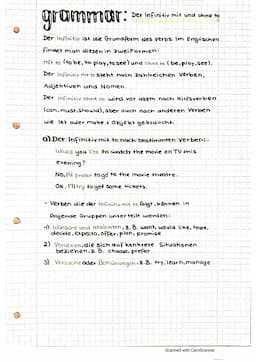 grammar: Der Infinitiv mit und ohne to
Der Infinitiv ist die Grundform des Verbs. Im Englischen
findet man diesen in zwei Formen:
mit to (to be, to play, to see) und ohne to (be, play, see).
Der Infinitiv mit to steht nach zahlreichen Verben,
Adjektiven und Nomen.
Der Infinitiv ohne to wird vor allem nach Hilfsverben
(can, must, should), aber auch nach anderen Verben
wie let oder make + Objekt gebraucht.
a) Der Infinitiv mit to nach bestimmten Verben:
Would you like to watch the movie on TV this
evening?
No, I'd prefer to go to the movie theatre.
OK. I'll try to get some tickets.
- Verben die der Infinitiv mit to folgt, können in
folgende Gruppen unterteilt werden:
1) Wünsche und Absichten, z.B. want, would like, hope,
decide, expect, offer, plan, promise
2) Verben, die sich auf konkrete Situationen
beziehen, z.B. choose, prefer
3) Versuche oder Bemühungen, z.B. try, learn, manage
Scanned with CamScanner